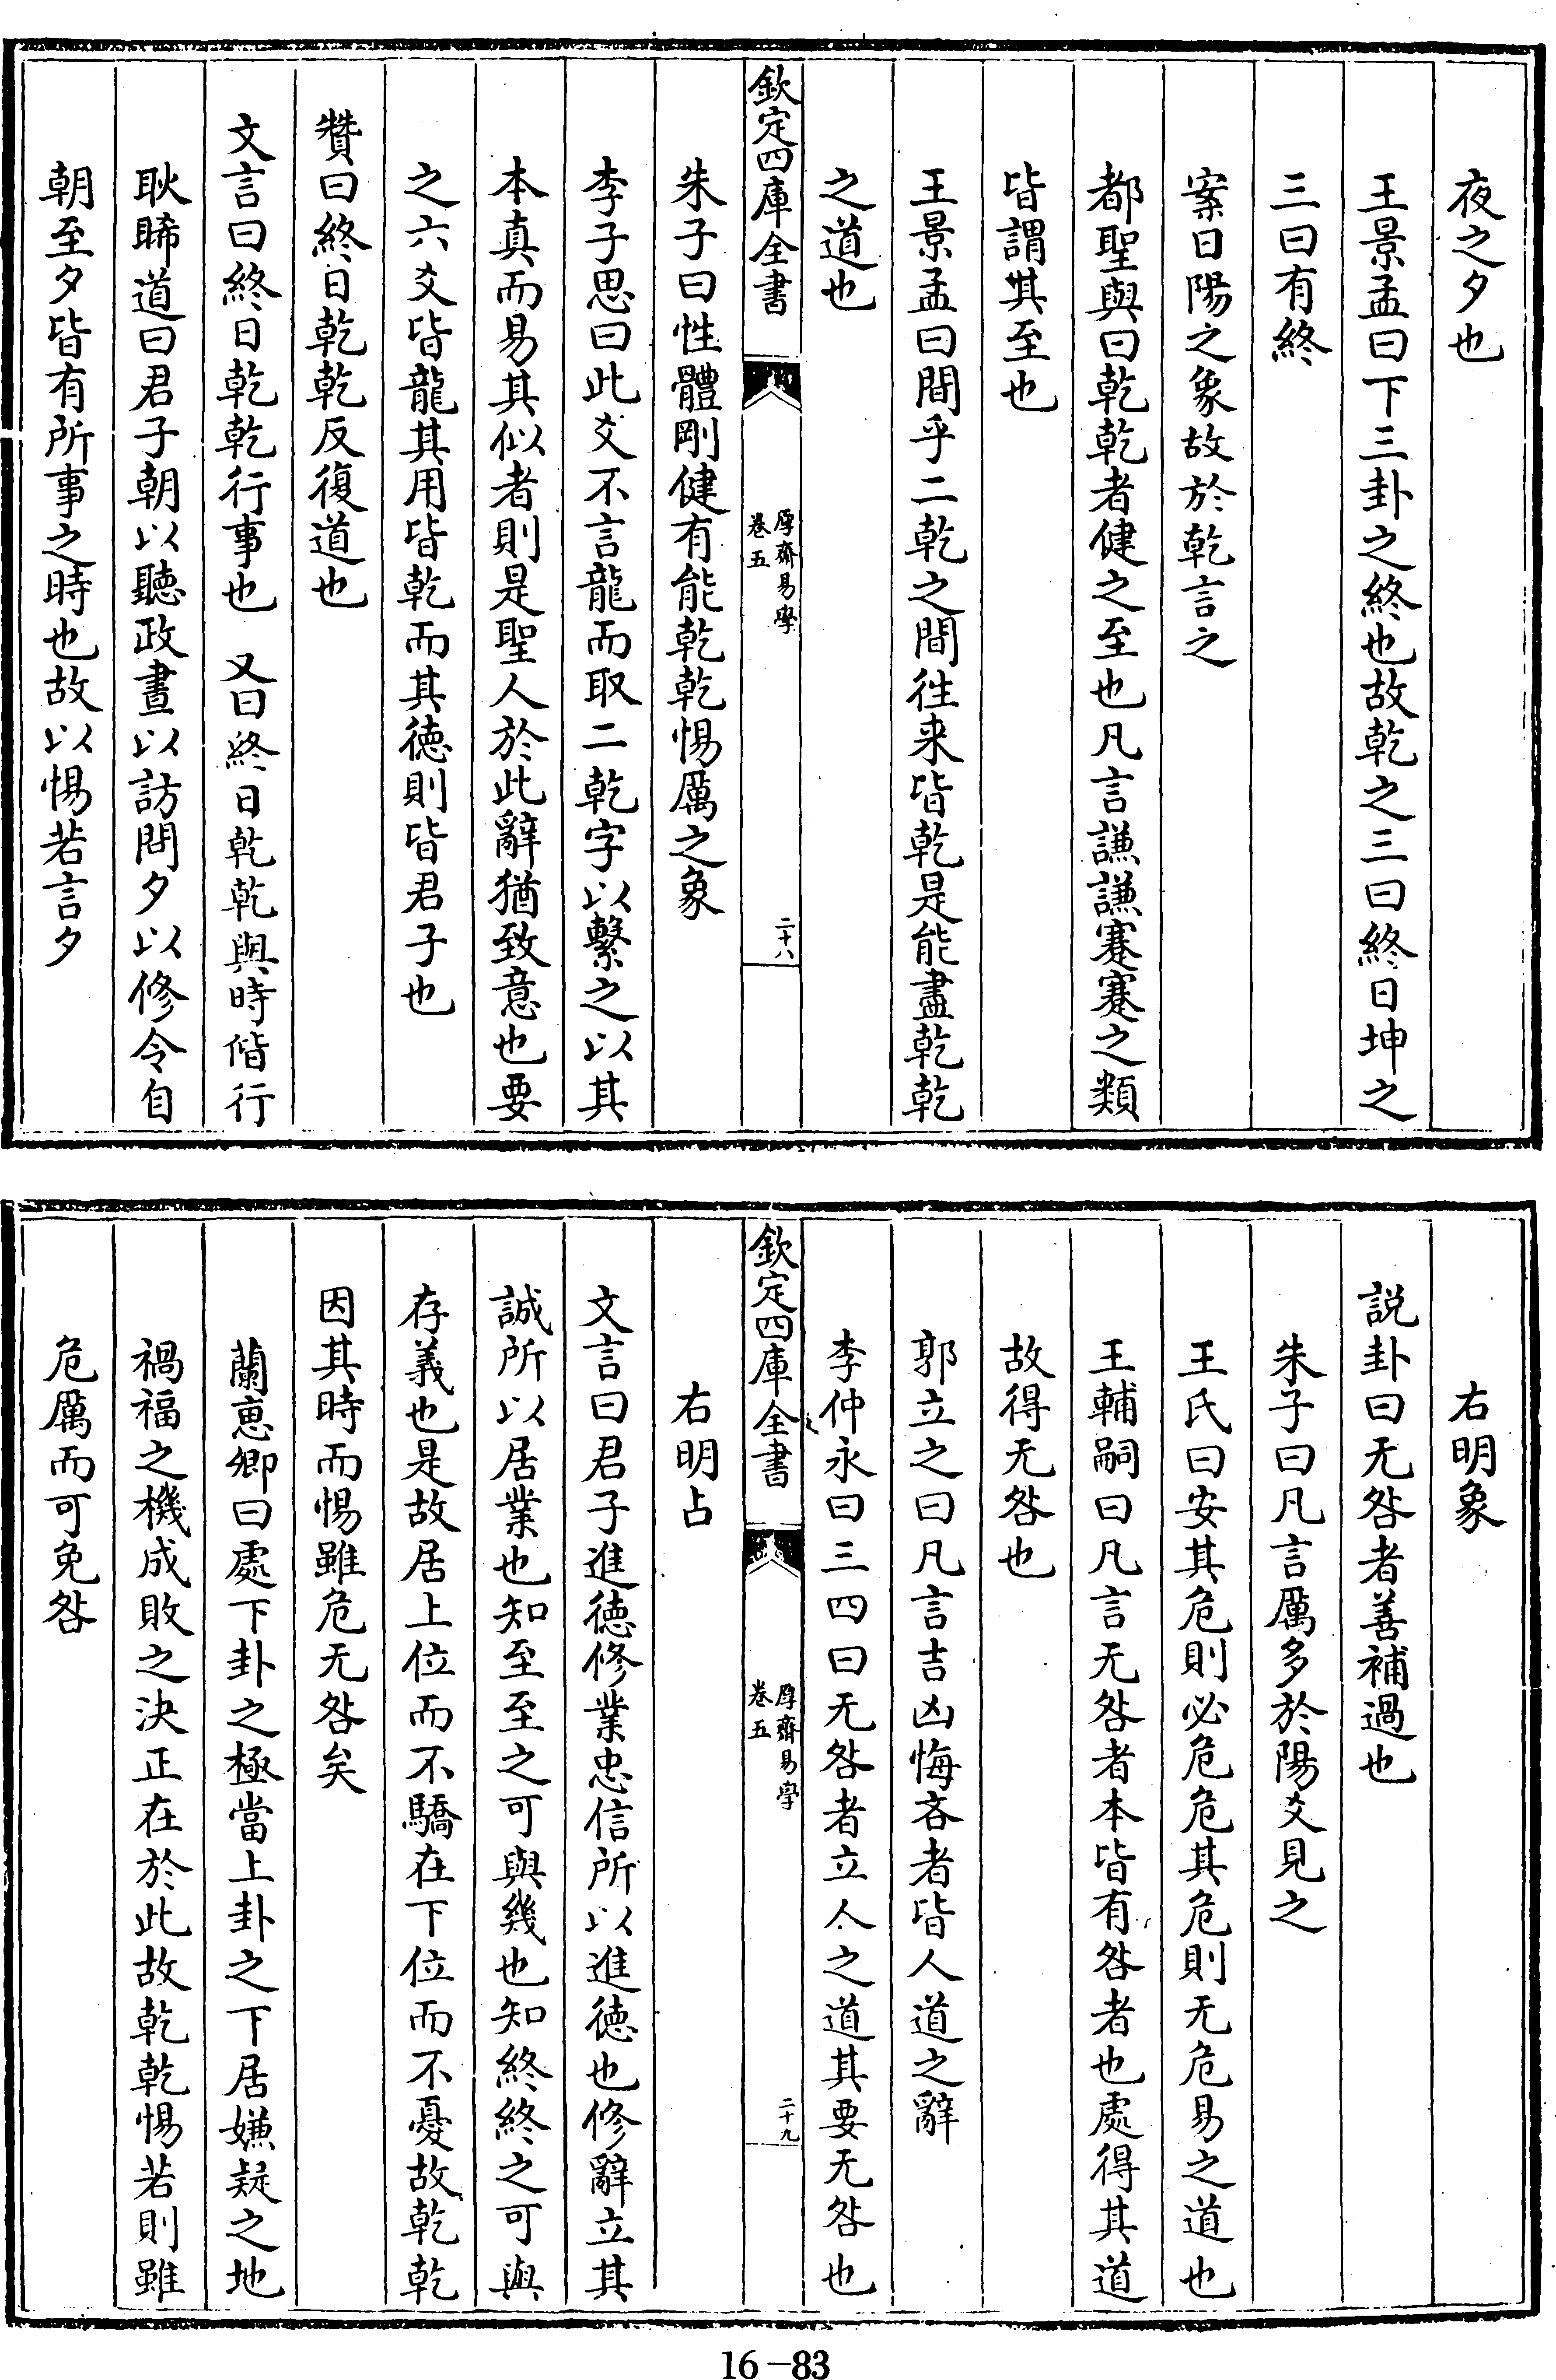 夜之夕也
王景孟曰下三卦之終也故乾之三曰終日坤之
三曰有終
案日陽之象故於乾言之
都聖與曰乾乾者健之至也凡言謙謙蹇蹇之類
皆謂其至也
王景孟曰間乎二乾之間徃来皆乾是能盡乾乾
之道也
欽定四庫全書
厚齋易學
卷五
二十八
朱子曰性體剛健有能乾乾惕厲之象
李子思曰此爻不言龍而取二乾字以繫之以其
本真而易其似者則是聖人於此辭猶致意也要
之六爻皆龍其用皆乾而其徳則皆君子也
贊曰終日乾乾反復道也
文言曰終日乾乾行事也　又曰終日乾乾與時偕行
耿睎道曰君子朝以聽政晝以訪問夕以修令自
朝至夕皆有所事之時也故以惕若言夕
右明象
説卦曰无咎者善補過也
朱子曰凡言厲多於陽爻見之
王氏曰安其危則必危危其危則无危易之道也
王輔嗣曰凡言无咎者本皆有咎者也處得其道
故得无咎也
郭立之曰凡言吉凶悔吝者皆人道之辭
李仲永曰三四曰无咎者立人之道其要无咎也
欽定四庫全書
厚齋易學
卷五
二十九
右明占
文言曰君子進徳修業忠信所以進徳也修辭立其
誠所以居業也知至至之可與幾也知終終之可與
存義也是故居上位而不驕在下位而不憂故乾乾
因其時而惕雖危无咎矣
蘭惠卿曰處下卦之極當上卦之下居嫌疑之地
禍福之機成敗之決正在於此故乾乾惕若則雖
危厲而可免咎
16-83